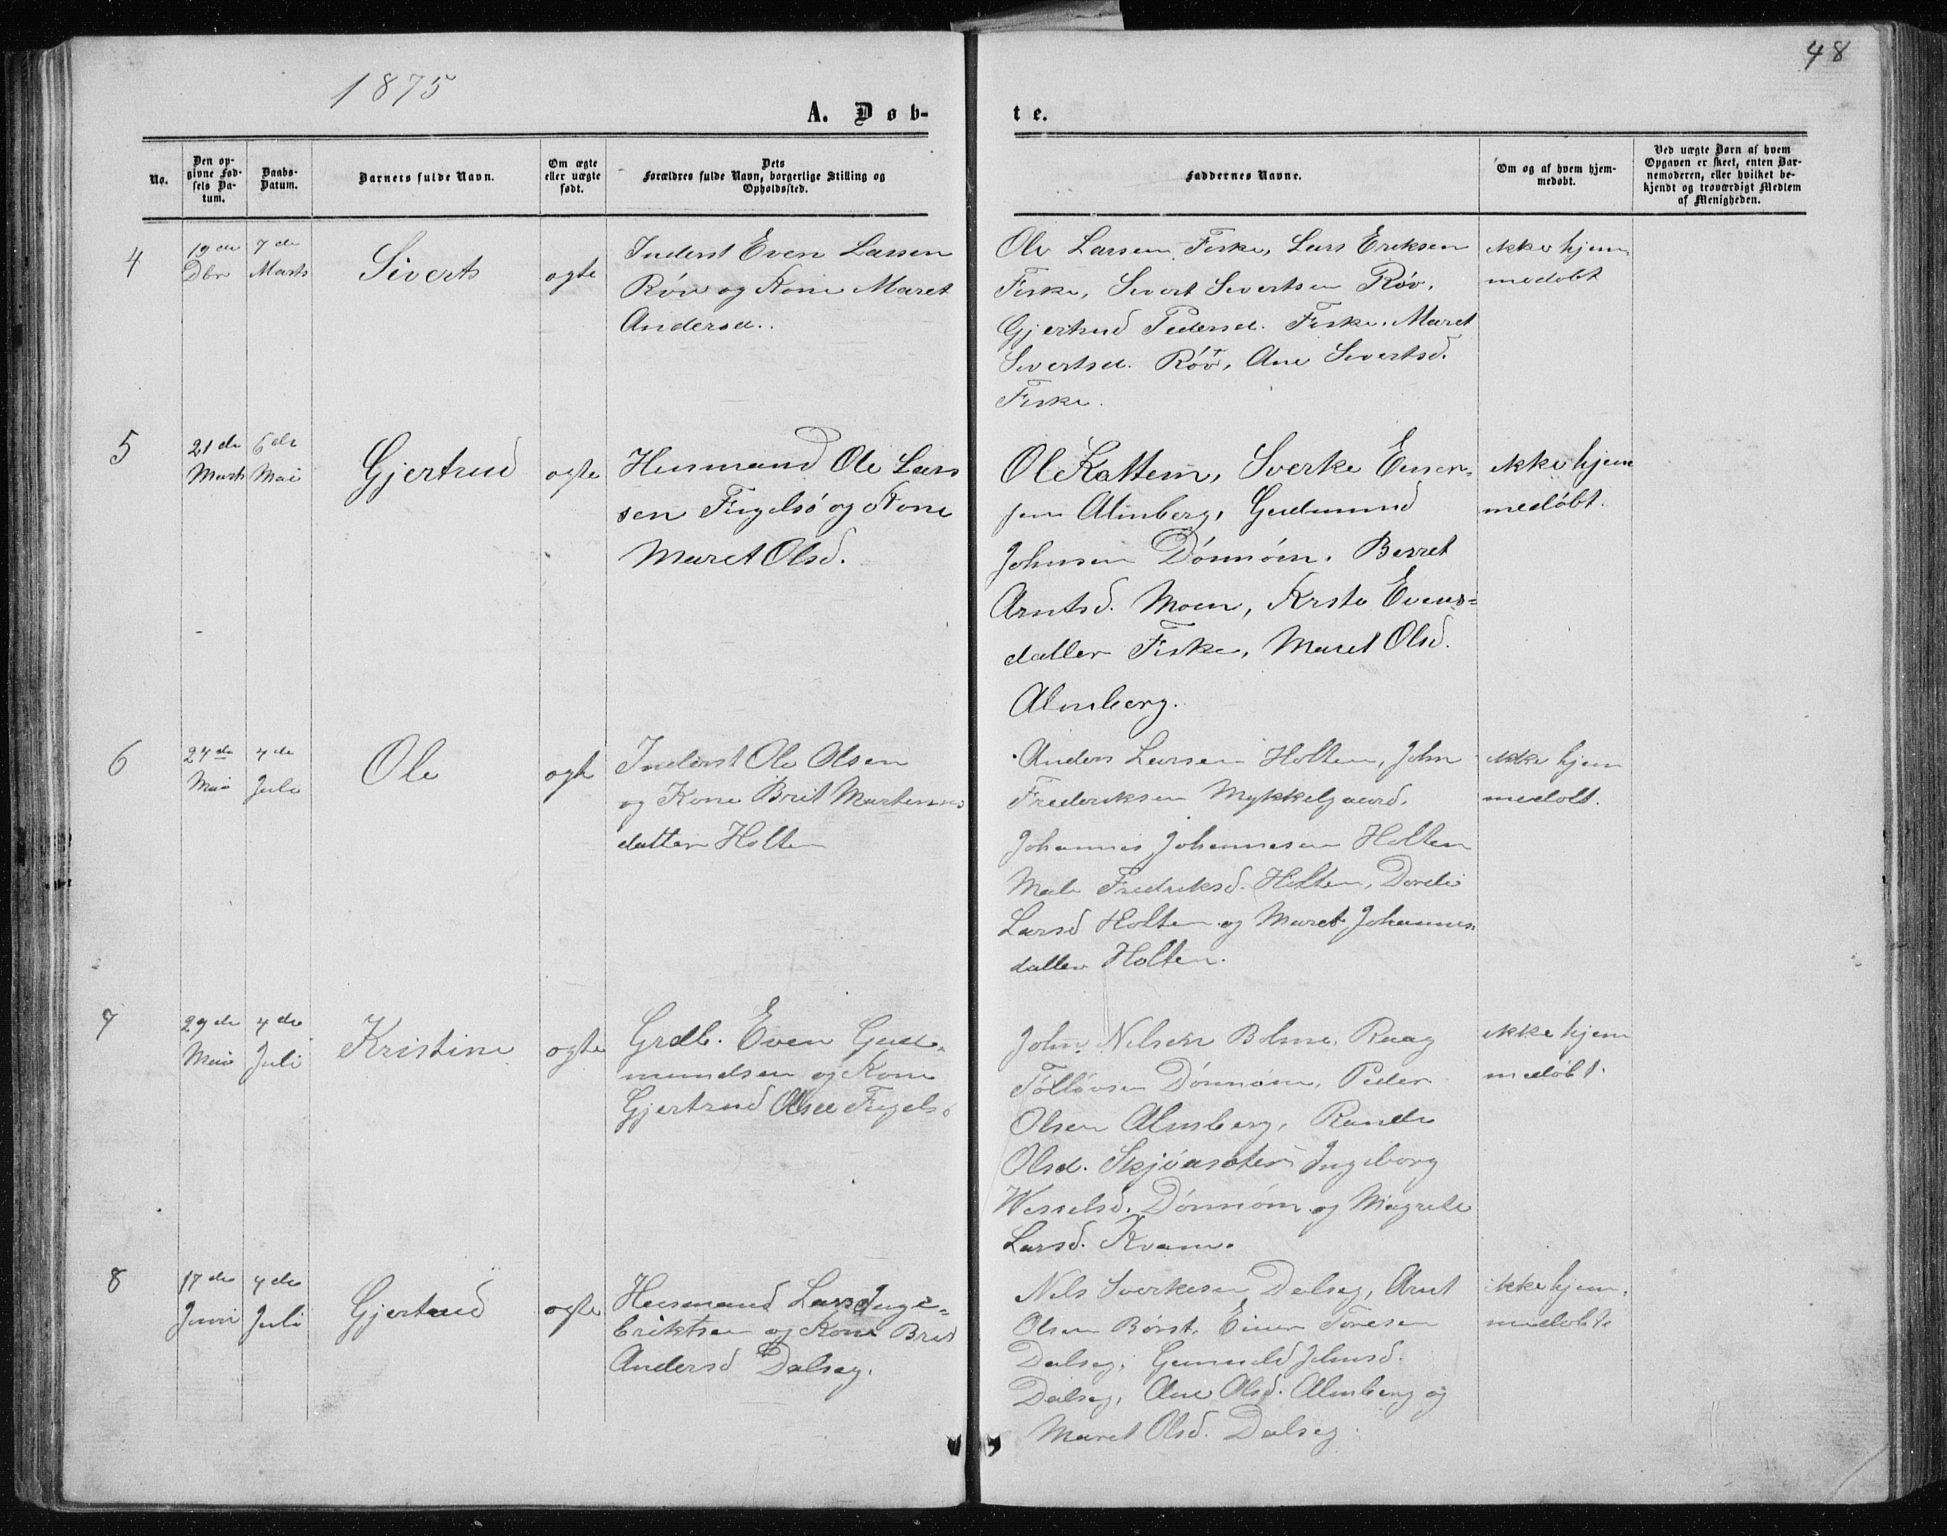 48
1875
A. Døb-
te.
No.
Den op-
givne Fød-
sels Da-
tum.
Daabs-
Datum.
Barnets fulde Navn.
Om ægte
eller uægte
født.
Dets
Forældres fulde Navn, borgerlige Stilling og
Opholdssted.
Faddernes Navne.
Om og af hvem hjem-
medøbt.
Ved uægte Børn af hvem
Opgaven er skeet, enten Bar-
nemoderen, eller hvilket be-
kjendt og troværdigt Medlem
af Menigheden.
4
19de
Dbr
7de
Marts
Siverts
ogte
Inderst Even Larsen
Røv og Kone Maret
Andersd.
Ole Larsen Fiske, Lars Eriksen
Fiske, Sivert Sivertsen Røv,
Gjertrud Pedersd. Fiske, Maret
Sivertsd. Røv, Ane Sivertsd.
Fiske.
ikke hjem
medøbt
5
21de
Marts
6de
Mai
Gjertrud
ogte
Husmand Ole Lars
sen Fugelsø og Kone
Maret Olsd.
Ole Kattem, Sverke Einar-
sen Almberg, Gudmund
Johnsen Dønnøim, Berret
Arntsd. Moen, Krste Evens-
datter Fiske, Maret Olsd.
Almberg.
ikke hjem
medøbt.
6
24de
Mai
4de
Juli
Ole
ogte
Inderst Ole Olsen
og Kone Brit Martinus
datter Holten
Anders Larsen Holten, John
Frederiksen Mykkelgaard,
Johannes Johannesen Holten
Mali Fredriksd. Holten, Dordi
Larsd Holten og Maret Johannes
datter Holten.
ikke hjem
medøbt.
7
29de
Mai
4de
Juli
Kristine
ogte
Grdb. Even Gud-
mundsen og Kone
Gjertrud Olsd Fugelsø
John Nilsen Bolme, Raag
Tølløvsen Dønnøim, Peder
Olsen Almberg, Randi
Olsd. Skjøasæter Ingeborg
Wesselsd. Dønnøim og Magrete
Larsd. Kvam.
ikke hjem
medøbt.
8
17de
Juni
4de
Juli
Gjertrud
ogte
Husmand Lars Inge-
briktsen og Kone Brit
Andersd Dalseg.
Nils Sverkesen Dalseg, Arnt
Olsen Børst, Einar Toresen
Dalseg, Gunild Johnsd.
Dalseg, Ane Olsd. Almberg og
Maret Olsd. Dalseg.
ikke hjem-
medøbt